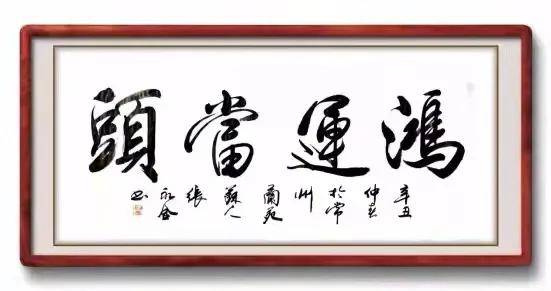 鴻運當頭
辛丑仲春於常州蘭苑蘇人張永合书